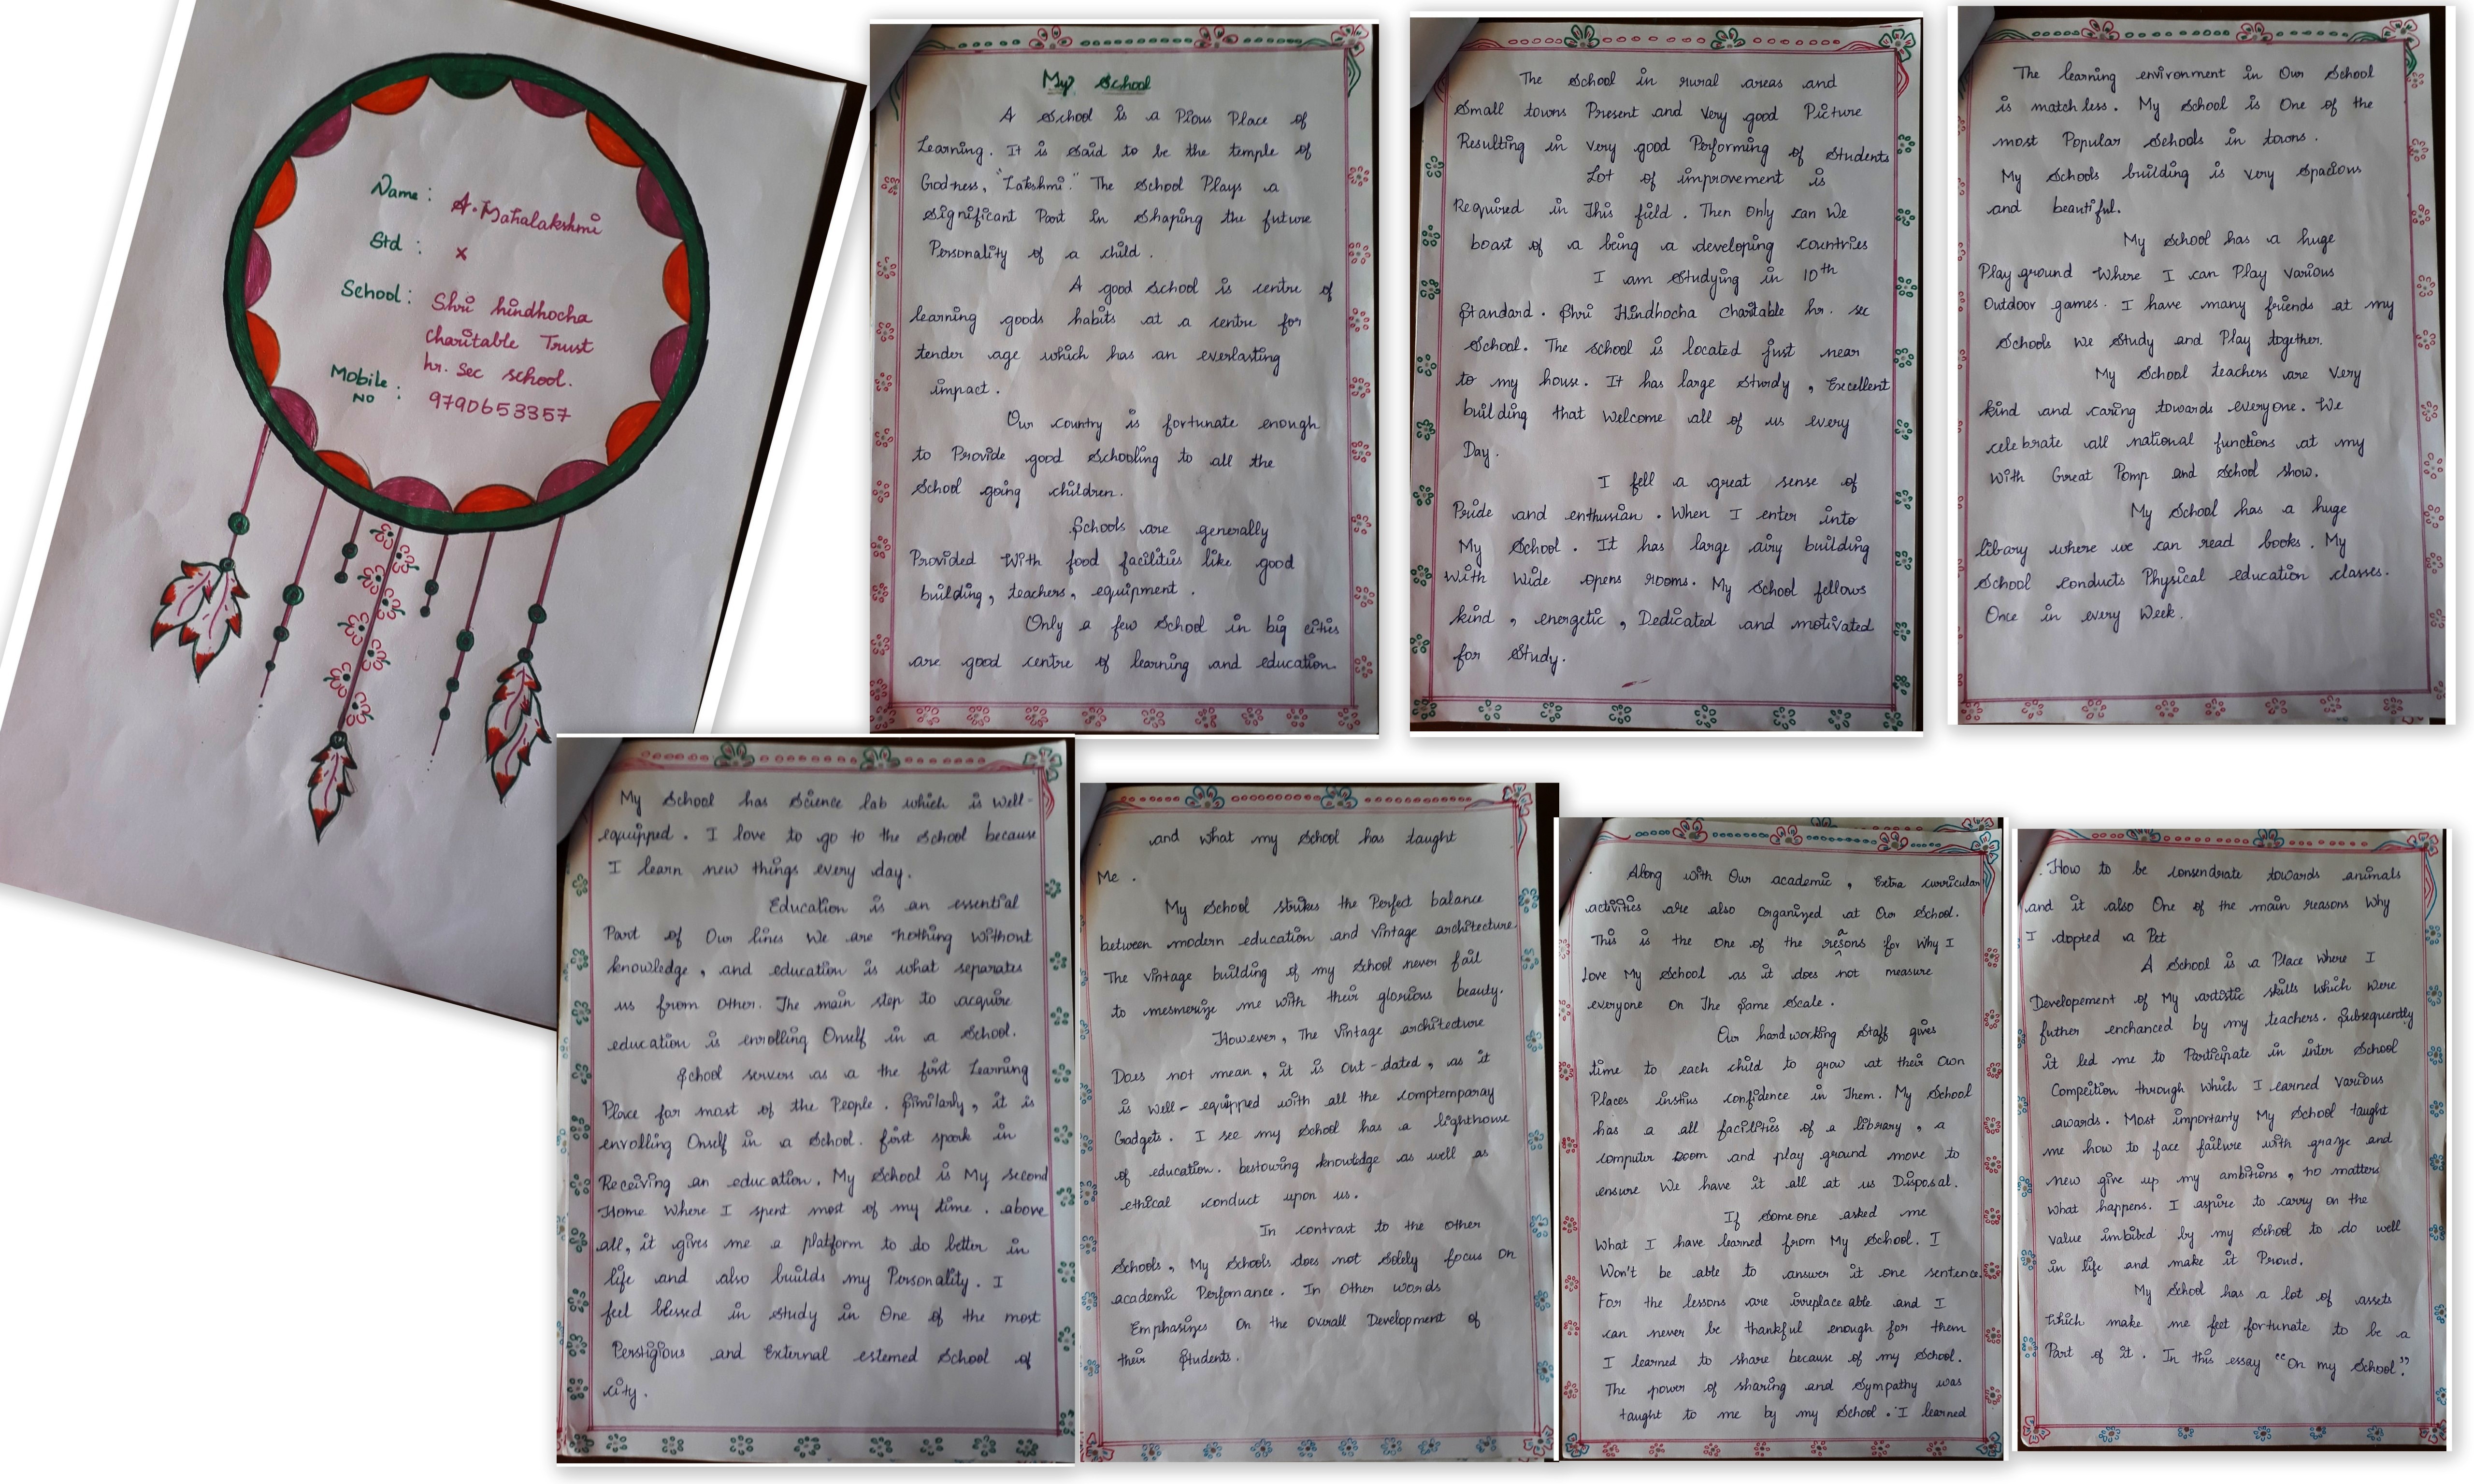 Name : A. Mahalakshmi
Std : X
School : Shri hindhocha
charitable Trust
hr. sec school.
Mobile NO : 9790653357
My School
A School is a Pious Place of
Learning. It is said to be the temple of
Godness, "Lakshmi." The School Plays a
significant Part in shaping the future
Personality of a child.
A good school is centre of
learning goods habits at a centre for
tender age which has an everlasting
impact.
Our country is fortunate enough
to Provide good schooling to all the
School going children.
Schools are generally
Provided With food facilities like good
building, teachers, equipment.
Only a few School in big cities
are good centre of learning and education
The School in rural areas and
Small towns Present and very good Picture
Resulting in very good Performing of students
Lot of improvement is
Required in This field. Then Only can We
boast of a being a developing countries
I am studying in 10th
Standard. Shri Hindhocha charitable hr. sec
School. The school is located just near
to my house. It has large sturdy, Excellent
building that Welcome all of us every
Day.
I fell a great sense of
Pride and enthusian. When I enter into
My School. It has large airy building
With Wide opens rooms. My School fellows
kind, energetic, Dedicated and motivated
for Study.
The learning environment in Our School
is match less. My School is One of the
most Popular Schools in towns.
My Schools building is very Spacious
and beautiful.
My School has a huge
Play ground Where I can Play various
Outdoor games. I have many friends at my
Schools We Study and Play together.
My School teachers are very
kind and caring towards everyone. We
celebrate all national functions at my
With Great Pomp and School show.
My School has a huge
libary where we can read books. My
School conducts Physical education classes.
Once in every Week.
My School has Science lab which is Well-
equipped. I love to go to the School because
I learn new things every day.
Education is an essential
Part of Our lines We are nothing Without
knowledge, and education is what separates
us from Other. The main step to acquire
education is enrolling Onself in a School.
School servers as a the first Learning
Place for most of the People. Similarly, it is
enrolling Onself in a School. first spark in
Receiving an education. My School is My second
Home Where I spent most of my time. above
all, it gives me a platform to do better in
life and also buuilds my Personality. I
feel blessed in study in One of the most
Perstigious and External estemed School of
city.
and what my School has taught
Me.
My School strikes the Perfect balance
between modern education and Vintage architecture.
The Vintage building of my School never fail
to mesmerize me with their glorious beauty.
However, The Vintage architecture
Does not mean, it is out-dated, as it
is Well-equipped with all the comptemparay
Gadgets. I see my School has a lighthouse
of education. bestowing knowledge as well as
ethical conduct upon us.
In contrast to the Other
Schools, My Schools does not Solely focus On
academic Perfomance. In Other words
Emphasizes On the Overall Development of
their Students.
Along with Our academic, Extra curricular
activities are also Organized at Our School.
This is the One of the reasons for Why I
Love My School as it does not measure
everyone On The Same Scale.
Our hardworking Staff gives
time to each child to grow at their Own
Places instius confidence in Them. My School
has a all facilities of a library, a
computer Room and play ground move to
ensure We have it all at us Disposal.
If Someone asked me
What I have learned from My School. I
Won't be able to answer it one sentence.
For the lessons are irreplace able and I
can never be thankful enough for them
I learned to share because of my School.
The power of sharing and Sympathy was
taught to me by my School. I learned
How to be consendrate towards animals
and it also One of the main reasons Why
I dopted a Pet
A School is a Place Where I
Developement of My artistic skills which were
futher enchanced by my teachers. Subsequently
it led me to Participate in inter School
Compeition through which I earned Various
awards. Most importanty My School taught
me how to face failure with graze and
new give up my ambitions, no matters
what happens. I aspire to carry on the
value imbibed by my School to do well
in life and make it Proud.
My School has a lot of assets
Which make me feet fortunate to be a
Part of it. In this essay "On my School".